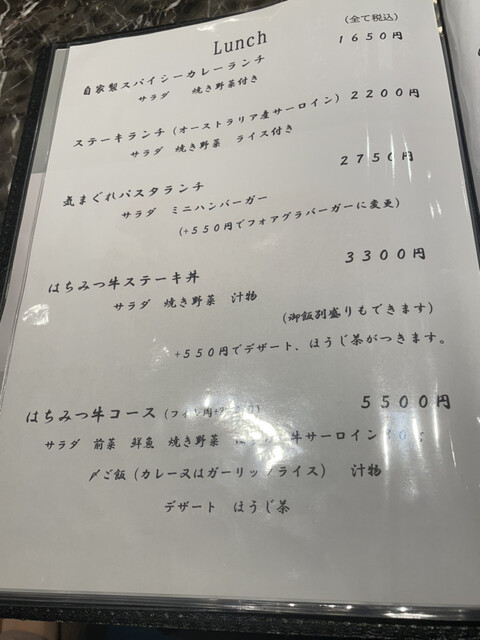 Lunch
(全て税込)
自家製スパイシーカレーランチ 1650円
サラダ 焼き野菜付き
ステーキランチ(オーストラリア産サーロイン) 2200円
サラダ 焼き野菜 ライス付き
気まぐれパスタランチ 2750円
サラダ ミニハンバーガー
(+550円でフォアグラバーガーに変更)
はちみつ牛ステーキ丼 3300円
サラダ 焼き野菜 汁物
(御飯別盛りもできます)
+550円でデザート、ほうじ茶がつきます。
はちみつ牛コース 5500円
サラダ 前菜 鮮魚 焼き野菜 牛サーロイン
〆ご飯(カレー又はガーリックライス) 汁物
デザート ほうじ茶